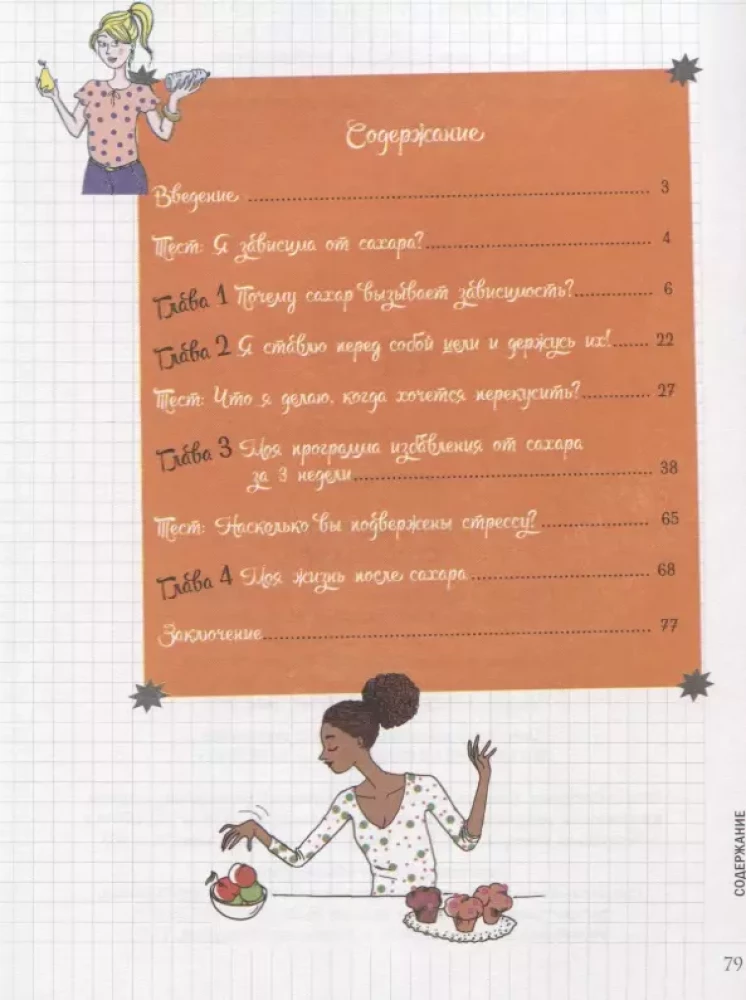 Содержание
Введение 3
Тест: Я зависима от сахара? 4
Глава 1 Почему сахар вызывает зависимость? 6
Глава 2 Я ставлю перед собой цели и держусь их! 22
Тест: Что я делаю, когда хочется перекусить? 27
Глава 3 Моя программа избавления от сахара
за 3 недели 38
Тест: Насколько вы подвержены стрессу? 65
Глава 4 Моя жизнь после сахара 68
Заключение 77
СОДЕРЖАНИЕ
79